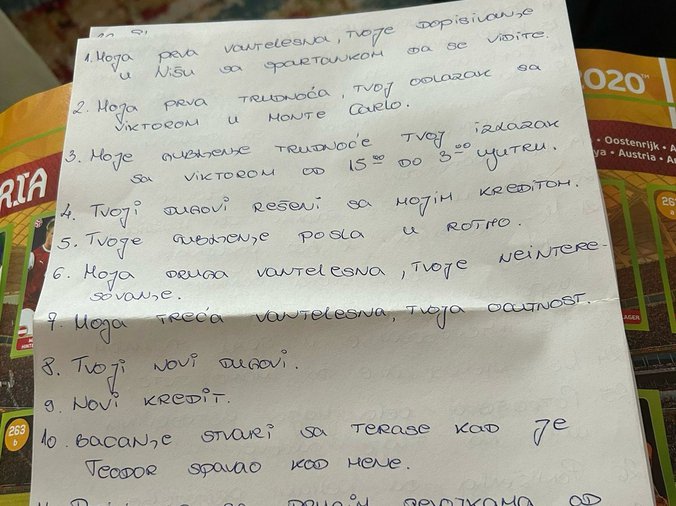 1. Moja prva vantelesna, tvoje dopisivanje
u Nišu sa Spartankom da se vidite.
2. Moja prva trudnoća, tvoj odlazak sa
Viktorom u Monte Carlo.
3. Moje gubljenje trudnoće tvoj izlazak
sa Viktorom od 15⁰⁰ do 3⁰⁰ ujutru.
4. Tvoji dugovi rešeni sa mojim kreditom.
5. Tvoje gubljenje posla u
6. Moja druga vantelesna, tvoje neintere-
sovanje.
7. Moja treća vantelesna, tvoja
8. Tvoji novi dugovi.
9. Novi kredit.
10. Bacanje stvari sa terase kad je
Teodor spavao kod mene.
2020™
• Oostenrijk • A
ya • Austria • A
RIA
263
b